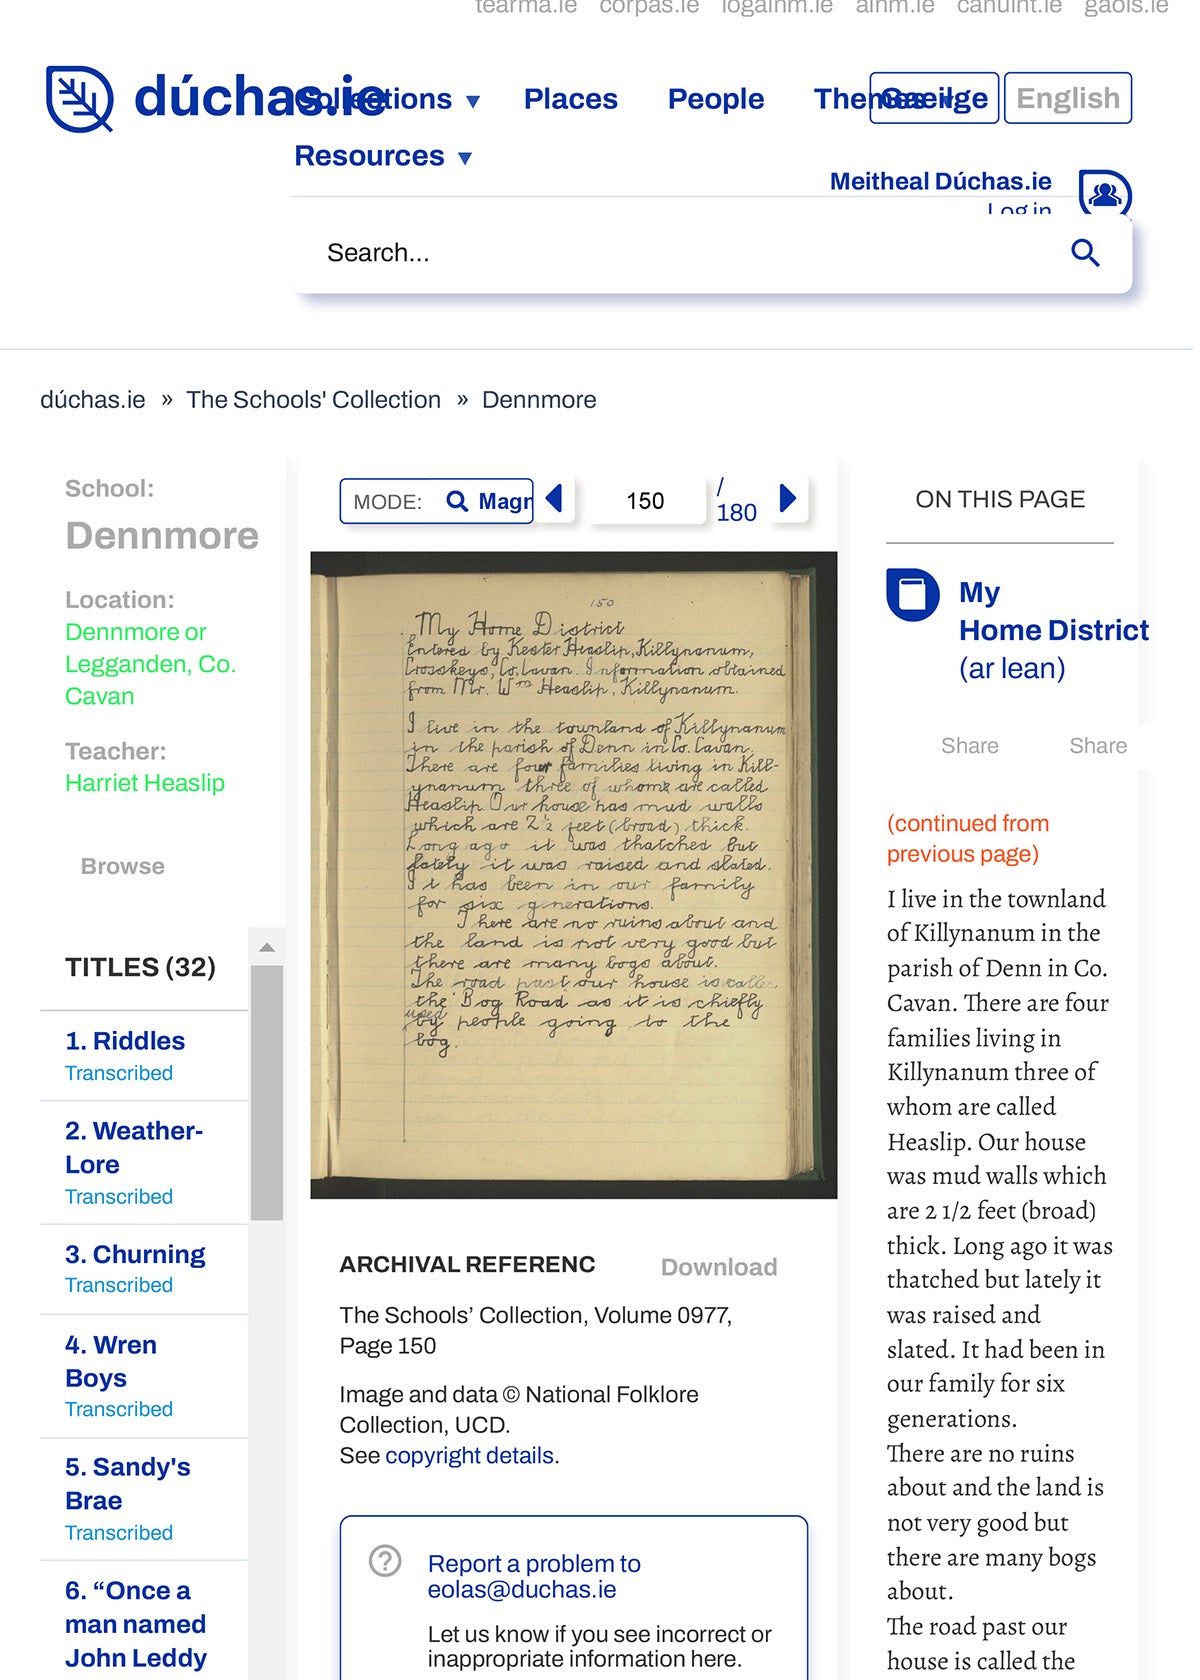 tearma.ie corpas.ie logainm.ie ainm.ie canuint.ie gaois.ie
dúchas.ie
Collections ▼ Places People Themes
Gaeilge English
Resources ▼
Meitheal Dúchas.ie
Log in
Search...
dúchas.ie » The Schools' Collection » Dennmore
School:
Dennmore
Location:
Dennmore or
Legganden, Co.
Cavan
Teacher:
Harriet Heaslip
Browse
TITLES (32)
1. Riddles
Transcribed
2. Weather-
Lore
Transcribed
3. Churning
Transcribed
4. Wren
Boys
Transcribed
5. Sandy's
Brae
Transcribed
6. “Once a
man named
John Leddy
MODE: Magn
150
/
180
150
My Home District
Entered by Kester Heaslip, Killynanum,
Crosskeys, Co. Cavan. Information obtained
from Mr. Wm Heaslip, Killynanum.
I live in the townland of Killynanum
in the parish of Denn in Co. Cavan.
There are four families living in Kill-
ynanum three of whom are called
Heaslip Our house has mud walls
which are 2 1/2 feet (broad) thick.
Long ago it was thatched but
lately it was raised and slated.
It has been in our family
for six generations.
There are no ruins about and
the land is not very good but
there are many bogs about.
The road past our house is called
the Bog Road as it is chiefly
used
by people going to the
bog.
ARCHIVAL REFERENC
Download
The Schools’ Collection, Volume 0977,
Page 150
Image and data © National Folklore
Collection, UCD.
See copyright details.
Report a problem to
eolas@duchas.ie
Let us know if you see incorrect or
inappropriate information here.
ON THIS PAGE
My
Home District
(ar lean)
Share Share
(continued from
previous page)
I live in the townland
of Killynanum in the
parish of Denn in Co.
Cavan. There are four
families living in
Killynanum three of
whom are called
Heaslip. Our house
was mud walls which
are 2 1/2 feet (broad)
thick. Long ago it was
thatched but lately it
was raised and
slated. It had been in
our family for six
generations.
There are no ruins
about and the land is
not very good but
there are many bogs
about.
The road past our
house is called the